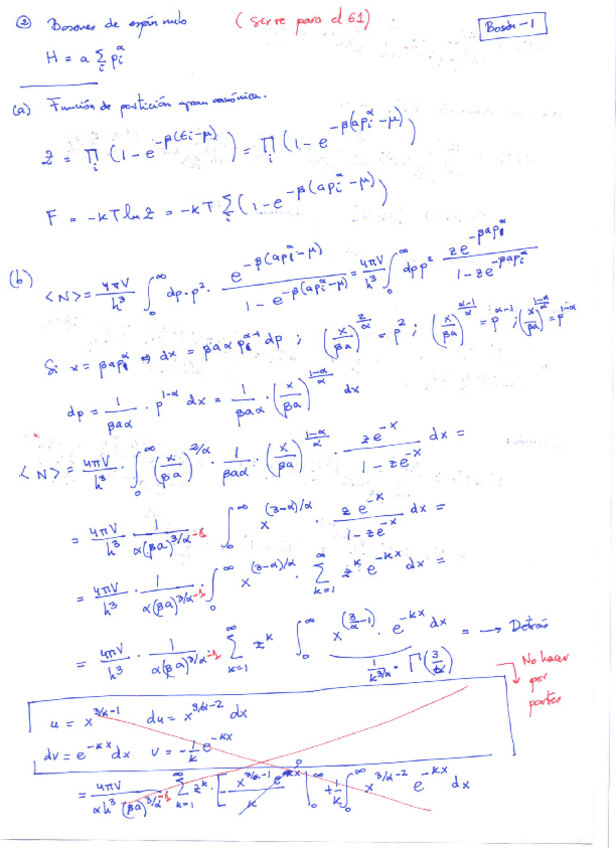 ② Bosones de espín nulo (Sirve para el 61) Bose-1
H = a Σ_i p_i^α
(a) Función de partición gran canónica.
Z = Π_i (1 - e^{-β(ε_i-μ)}) = Π_i (1 - e^{-β(ap_i^α-μ)})
F = -kT ln Z = -kT Σ_i (1 - e^{-β(ap_i^α-μ)})
(b) <N> = 4πV/h³ ∫_0^∞ dp·p²· e^{-β(ap_i^α-μ)} / (1 - e^{-β(ap_i^α-μ)}) = 4πV/h³ ∫_0^∞ dp p² ze^{-βap_i^α} / (1 - ze^{-βap_i^α})
Si x = βap_i^α ⇒ dx = βaα p_i^{α-1} dp ; (x/βa)^{2/α} = p² ; (x/βa)^{(α-1)/α} = p^{α-1} ; (x/βa)^{(1-α)/α} = p^{1-α}
dp = 1/(βaα) · p^{1-α} dx = 1/(βaα) · (x/βa)^{(1-α)/α} dx
<N> = 4πV/h³ · ∫_0^∞ (x/βa)^{2/α} · 1/(βaα) · (x/βa)^{(1-α)/α} · ze^{-x}/(1 - ze^{-x}) dx =
= 4πV/h³ · 1/(α(βa)^{3/α-1}) ∫_0^∞ x^{(3-α)/α} · ze^{-x}/(1 - ze^{-x}) dx =
= 4πV/h³ · 1/(α(βa)^{3/α-1}) · ∫_0^∞ x^{(3-α)/α} · Σ_{k=1}^∞ z^k e^{-kx} dx =
= 4πV/h³ · 1/(α(βa)^{3/α-1}) Σ_{k=1}^∞ z^k ∫_0^∞ x^{(3/α-1)} · e^{-kx} dx = → Detrás
1/k^{3/α} · Γ(3/α)
No hacer por partes
u = x^{3/α-1} du = x^{3/α-2} dx
dv = e^{-kx} dx v = -1/k e^{-kx}
= 4πV/(αh³(βa)^{3/α-1}) Σ_{k=1}^∞ z^k · [-x^{3/α-1} e^{-kx}/k |_0^∞ + 1/k ∫_0^∞ x^{3/α-2} e^{-kx} dx